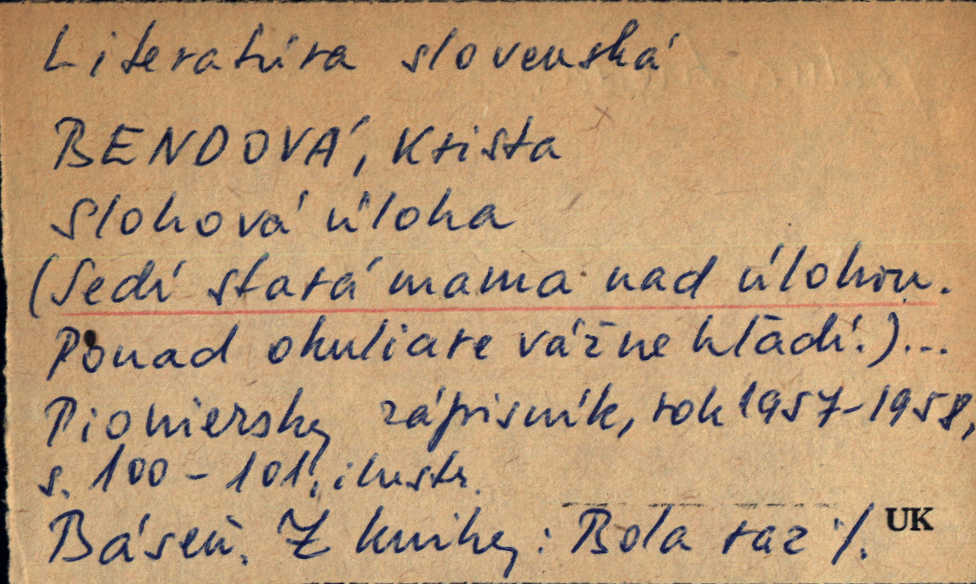 Literatúra slovenská
BENDOVÁ, Krista
Slohová úloha
(Sedí stará mama nad úlohou.
Ponad okuliare vážne hľadí.)...
Pioniersky zápisník, rok 1957-1958,
s. 100-101, ilustr.
Báseň. Z knihy: Bola raz /. UK